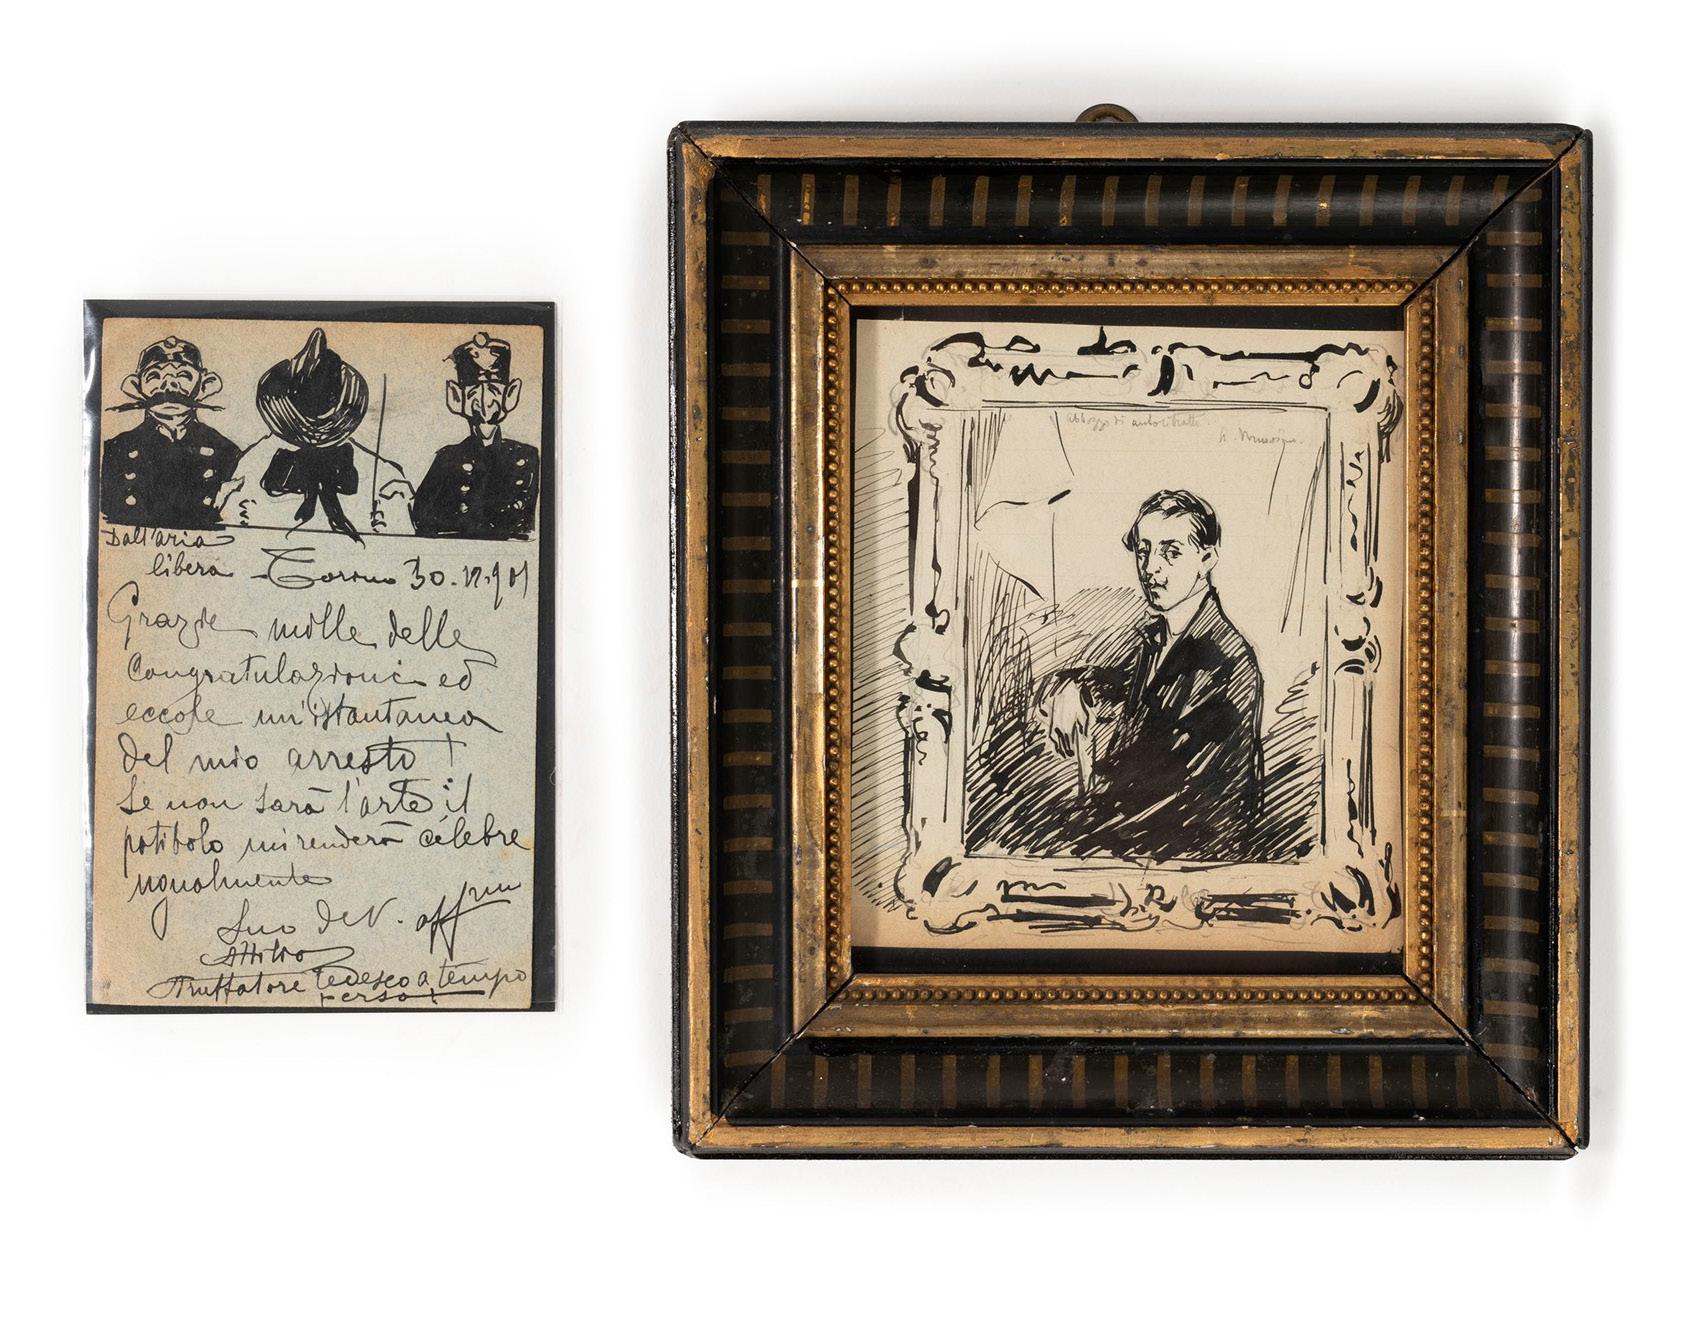 Dall'aria
libera - Torino 30.12.901
Grazie mille delle
congratulazioni ed
eccole un'istantanea
del mio arresto!
Se non sarà l'arte il
patibolo mi renderà celebre
ugualmente
Suo dev. affmo
Attilio
Truffatore tedesco a tempo
perso!
abbozzo di autoritratto.
A. Mussino.